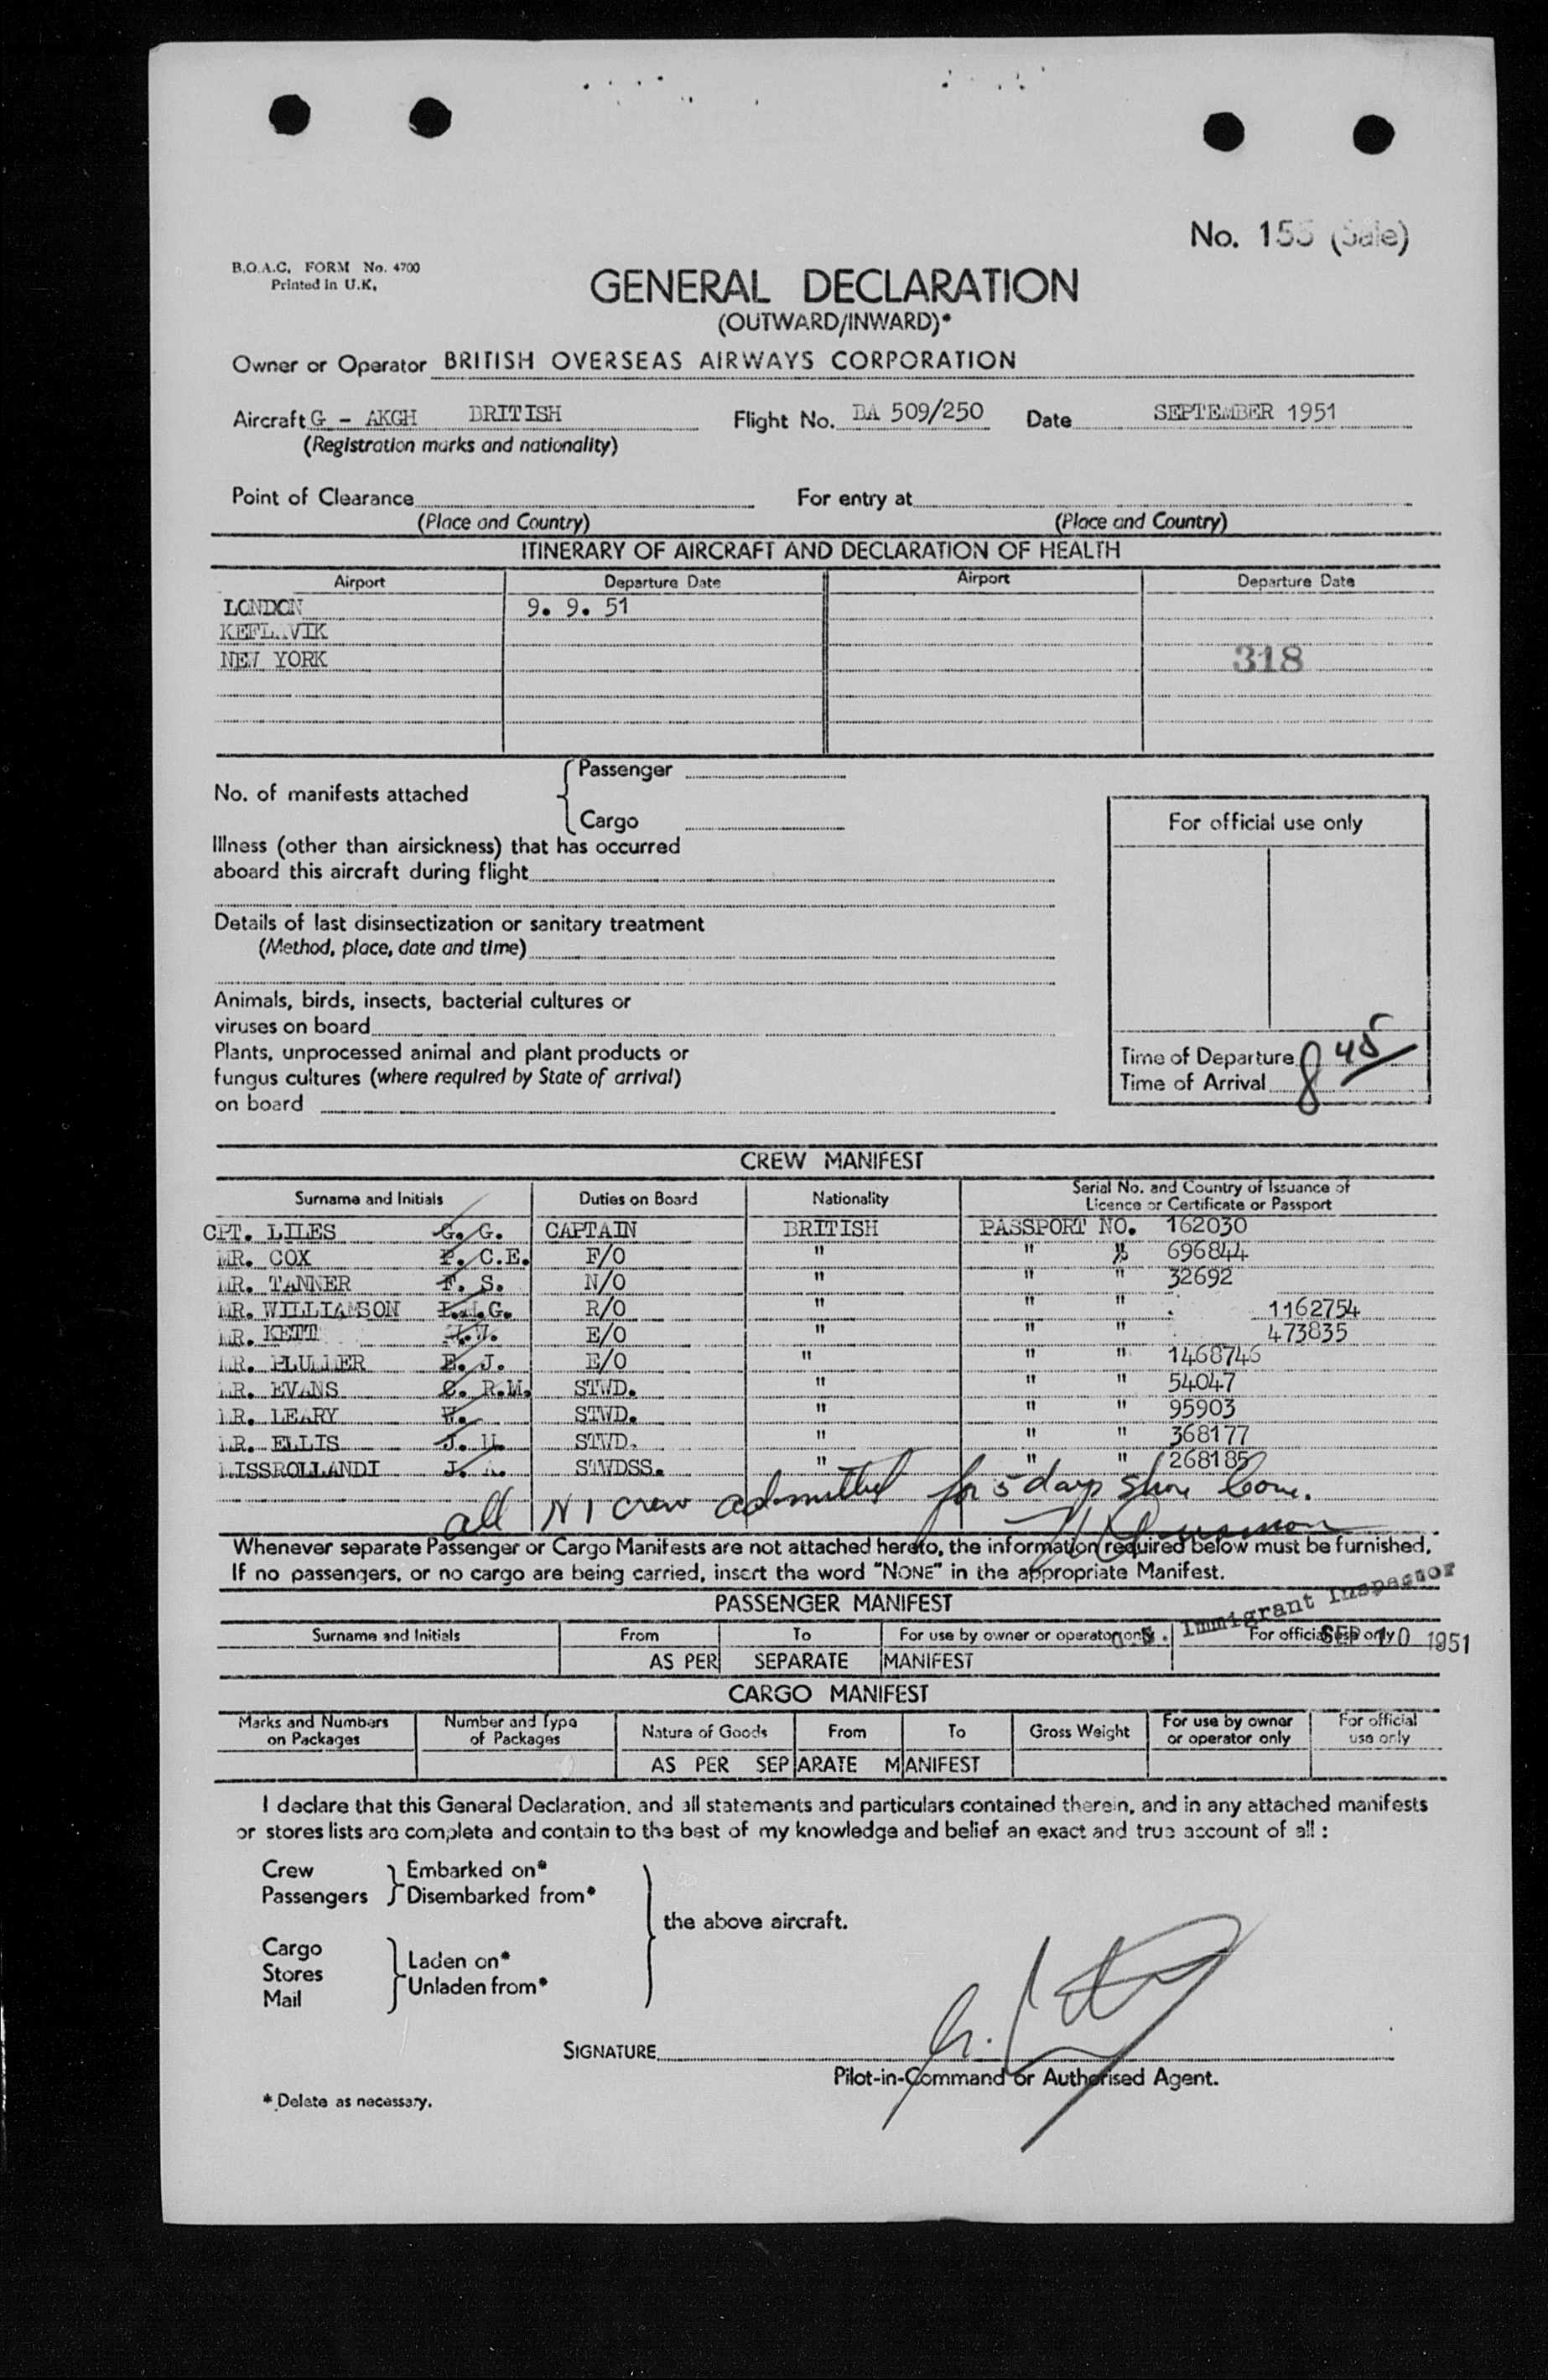 No. 155 (Sale)
B.O.A.C. FORM No. 4700
Printed in U.K.
GENERAL DECLARATION
(OUTWARD/INWARD)*
Owner or Operator BRITISH OVERSEAS AIRWAYS CORPORATION
Aircraft G - AKGH BRITISH Flight No. BA 509/250 Date SEPTEMBER 1951
(Registration marks and nationality)
Point of Clearance For entry at
(Place and Country) (Place and Country)
ITINERARY OF AIRCRAFT AND DECLARATION OF HEALTH
Airport Departure Date Airport Departure Date
LONDON 9. 9. 51
KEFLAVIK
NEW YORK 318
Passenger
No. of manifests attached
Cargo
For official use only
Illness (other than airsickness) that has occurred
aboard this aircraft during flight
Details of last disinsectization or sanitary treatment
(Method, place, date and time)
Animals, birds, insects, bacterial cultures or
viruses on board
Plants, unprocessed animal and plant products or
fungus cultures (where required by State of arrival)
on board
Time of Departure 8 45
Time of Arrival
CREW MANIFEST
Surname and Initials Duties on Board Nationality Serial No. and Country of Issuance of
Licence or Certificate or Passport
CPT. LILES G. G. CAPTAIN BRITISH PASSPORT NO. 162030
MR. COX P. C.E. F/O " " " 696844
MR. TANNER F. S. N/O " " " 32692
MR. WILLIAMSON G. R/O " " " 1162754
MR. KETT E/O " " " 473835
MR. PLUMMER E. J. E/O " " " 1468746
MR. EVANS C. R.M. STWD. " " " 54047
MR. LEARY W. STWD. " " " 95903
MR. ELLIS J. STWD. " " " 368177
MISSROLLANDI J. A. STWDSS. " " " 268185
all N1 crew admitted for 5 days shore leave.
Whenever separate Passenger or Cargo Manifests are not attached hereto, the information required below must be furnished.
If no passengers, or no cargo are being carried, insert the word "NONE" in the appropriate Manifest.
PASSENGER MANIFEST
U.S. Immigrant Inspector
Surname and Initials From To For use by owner or operator only For official use only
SEP 10 1951
AS PER SEPARATE MANIFEST
CARGO MANIFEST
Marks and Numbers on Packages Number and Type of Packages Nature of Goods From To Gross Weight For use by owner or operator only For official use only
AS PER SEPARATE MANIFEST
I declare that this General Declaration, and all statements and particulars contained therein, and in any attached manifests
or stores lists are complete and contain to the best of my knowledge and belief an exact and true account of all :
Crew Embarked on*
Passengers Disembarked from*
the above aircraft.
Cargo
Stores Laden on*
Unladen from*
Mail
SIGNATURE
Pilot-in-Command or Authorised Agent.
* Delete as necessary.